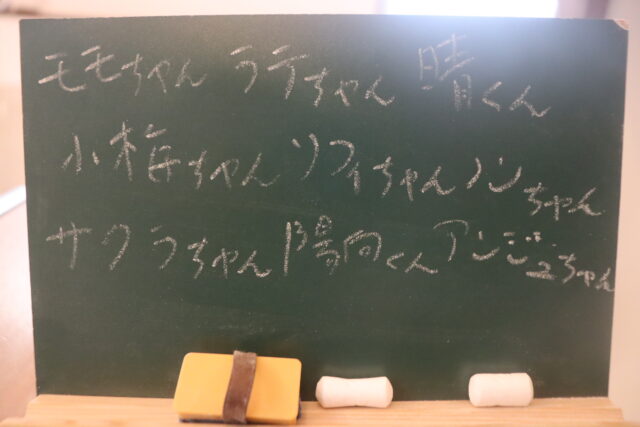 モモちゃん ラテちゃん 晴くん
小梅ちゃん ソフィちゃん ノンちゃん
サクラちゃん 陽向くん アンジュちゃん